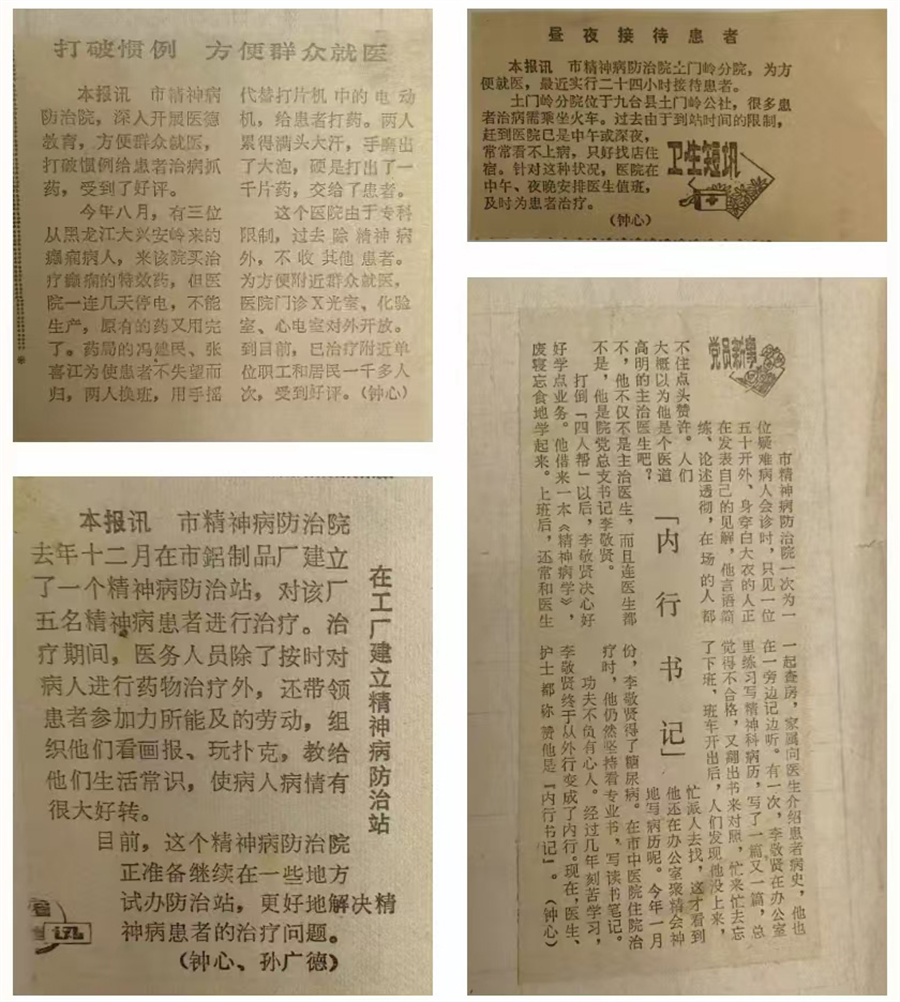 打破惯例 方便群众就医
本报讯 市精神病
防治院,深入开展医德
教育,方便群众就医,
打破惯例给患者治病抓
药,受到了好评。
今年八月,有三位
从黑龙江大兴安岭来的
癫痫病人,来该院买治
疗癫痫的特效药,但医
院一连几天停电,不能
生产,原有的药又用完
了。药局的冯建民、张
喜江为使患者不失望而
归,两人换班,用手摇
代替打片机中的电动
机,给患者打药。两人
累得满头大汗,手磨出
了大泡,硬是打出了一
千片药,交给了患者。
这个医院由于专科
限制,过去除精神病
外,不收其他患者。
为方便附近群众就医,
医院门诊X光室、化验
室、心电室对外开放。
到目前,已治疗附近单
位职工和居民一千多人
次,受到好评。(钟心)
昼夜接待患者
本报讯 市精神病防治院土门岭分院,为方
便就医,最近实行二十四小时接待患者。
土门岭分院位于九台县土门岭公社,很多患
者治病需乘坐火车。过去由于到站时间的限制,
赶到医院已是中午或深夜,
常常看不上病,只好找店住
宿。针对这种状况,医院在
中午、夜晚安排医生值班,
及时为患者治疗。
(钟心)
卫生短讯
在工厂建立精神病防治站
本报讯 市精神病防治院
去年十二月在市鋁制品厂建立
了一个精神病防治站,对该厂
五名精神病患者进行治疗。治
疗期间,医务人员除了按时对
病人进行药物治疗外,还带领
患者参加力所能及的劳动,组
织他们看画报、玩扑克,教给
他们生活常识,使病人病情有
很大好转。
目前,这个精神病防治院
正准备继续在一些地方
试办防治站,更好地解决精
神病患者的治疗问题。
(钟心、孙广德)
党员新事
「内行书记」
市精神病防治院一次为一
位疑难病人会诊时,只见一位
五十开外、身穿白大衣的人正
在发表自己的见解,他言语简
练、论述透彻,在场的人都
不住点头赞许。人们
大概以为他是个医道
高明的主治医生吧?
不,他不仅不是主治医生,而且连医生都
不是,他是院党总支书记李敬贤。
打倒「四人帮」以后,李敬贤决心好
好学点业务。他借来一本《精神病学》,
废寝忘食地学起来。上班后,还常和医生
一起查房,家属向医生介绍患者病史,他也
在一旁边记边听。有一次,李敬贤在办公室
里练习写精神科病历,写了一篇又一篇,总
觉得不合格,又翻出书来对照,忙来忙去忘
了下班,班车开出后,人们发现他没上来,
忙派人去找,这才看到
他还在办公室聚精会神
地写病历呢。今年一月
份,李敬贤得了糖尿病。在市中医院住院治
疗时,他仍然坚持看专业书,写读书笔记。
功夫不负有心人。经过几年刻苦学习,
李敬贤终于从外行变成了内行。现在,医生、
护士都称赞他是「内行书记」。(钟心)